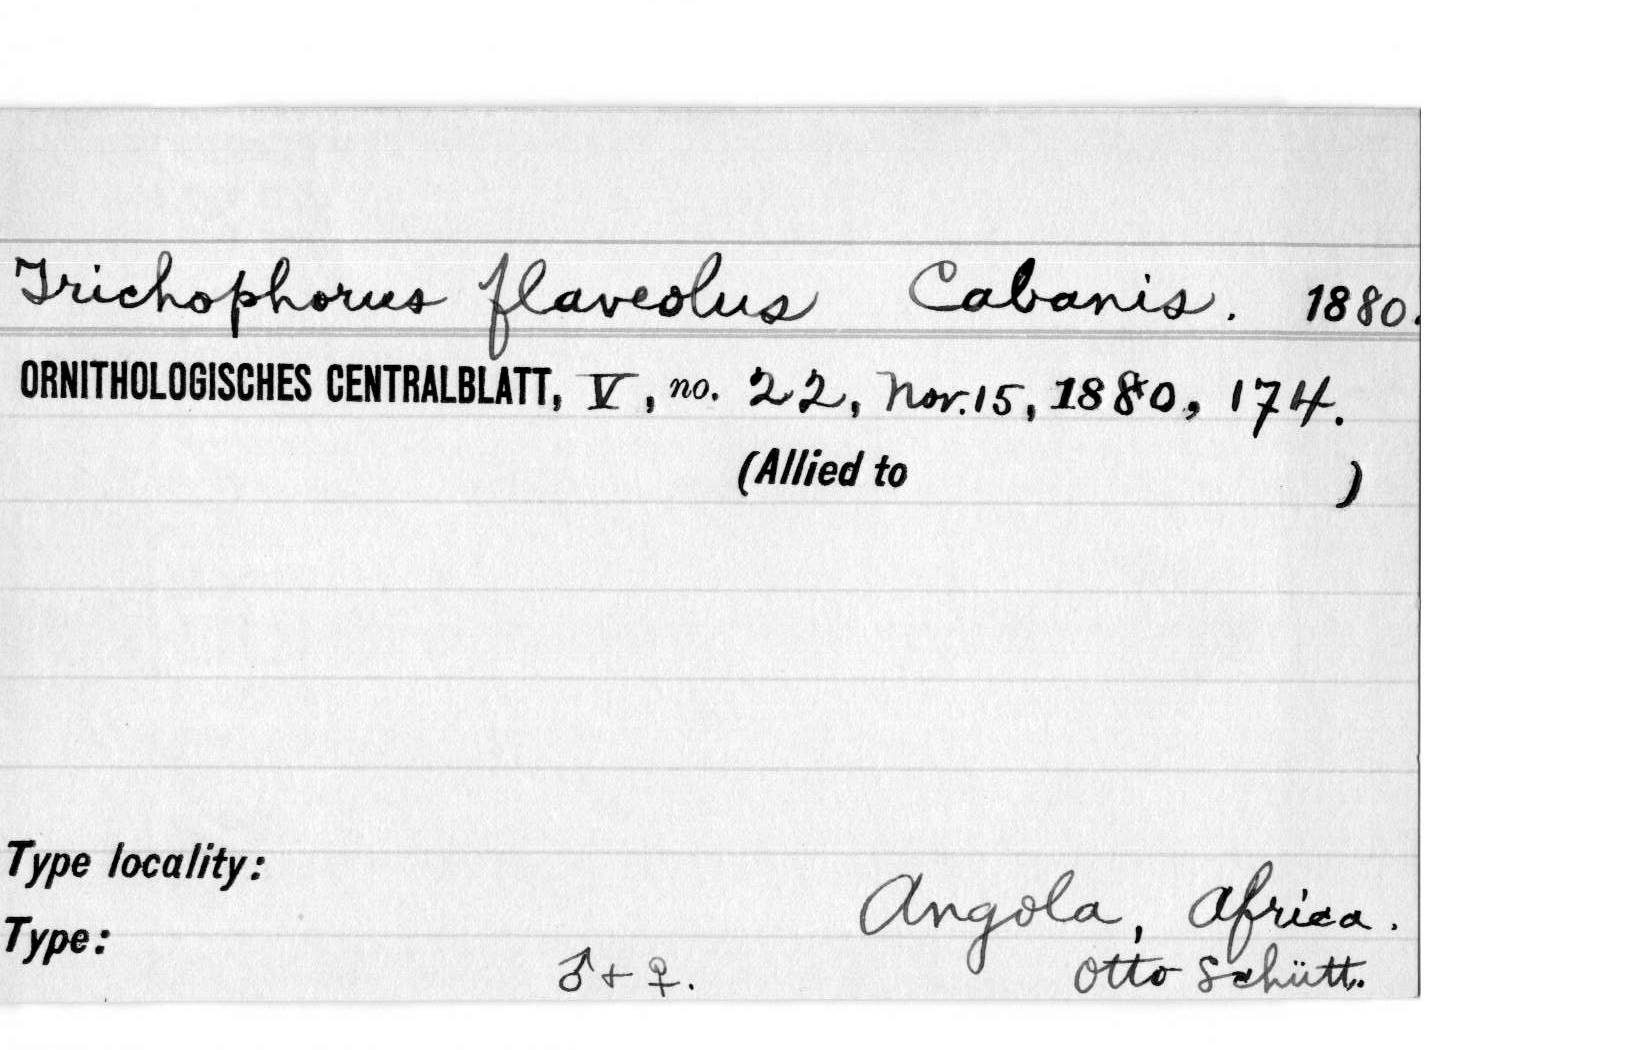 Trichophorus flaveolus Cabanis. 1880.
ORNITHOLOGISCHES CENTRALBLATT, V, no. 22, Nov. 15, 1880, 174.
(Allied to )
Type locality:
Angola, Africa.
Type:
♂ + ♀. Otto Schütt.